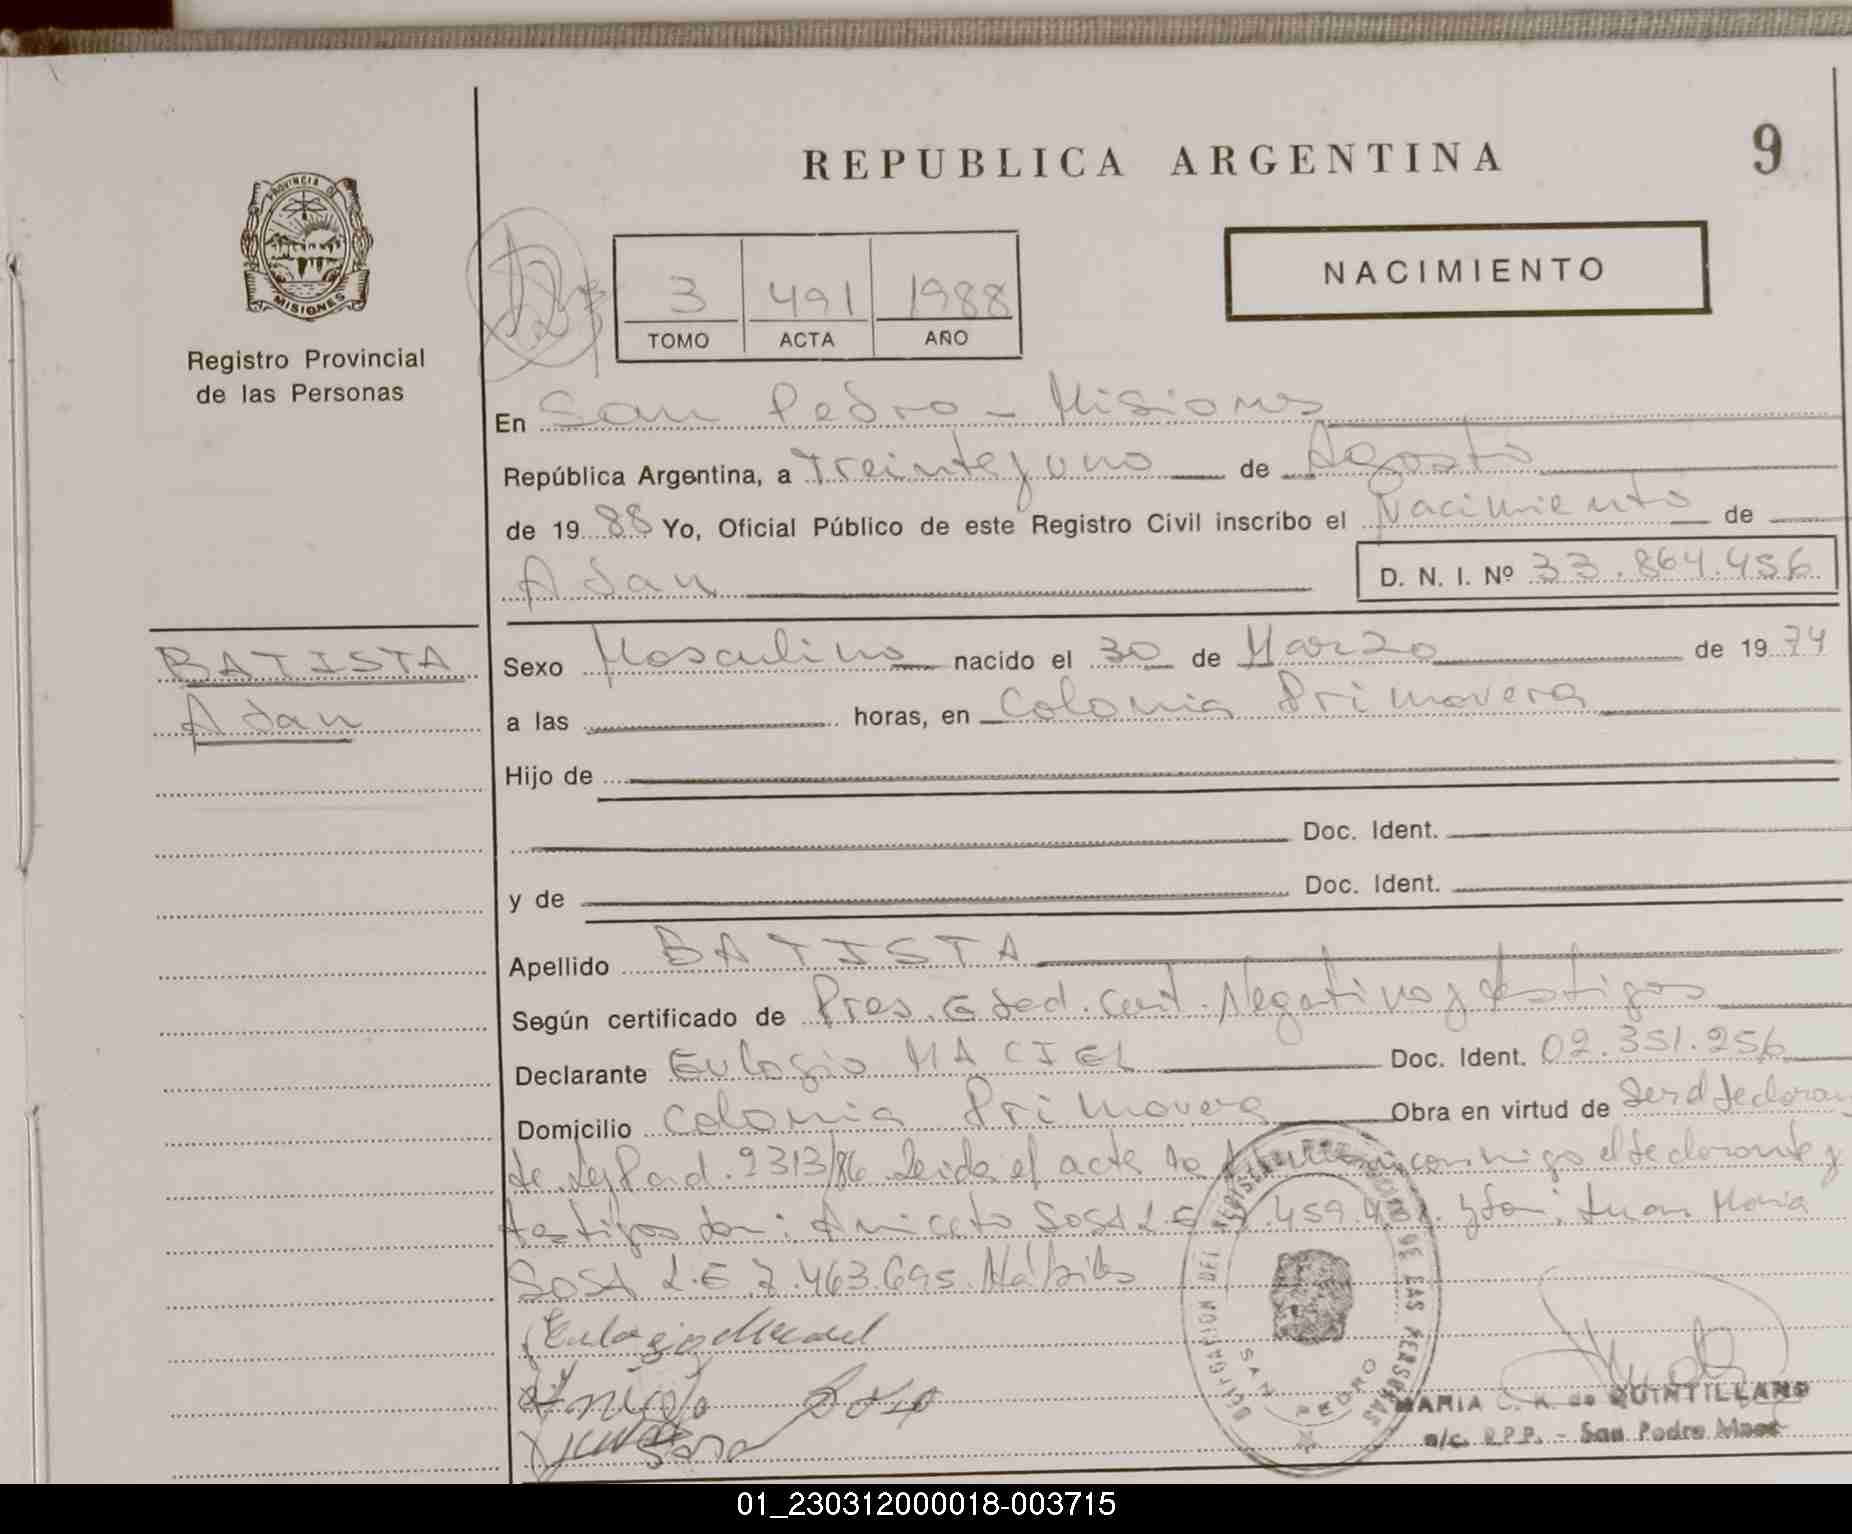 REPUBLICA ARGENTINA
9
PROVINCIA D
MISIONES
Registro Provincial
de las Personas
NACIMIENTO
3 491 1988
TOMO ACTA AÑO
En San Pedro - Misiones
República Argentina, a treinta y uno de Agosto
de 19 88 Yo, Oficial Público de este Registro Civil inscribo el Nacimiento de
Adan
D. N. I. Nº 33.864.456
BATISTA
Adan
Sexo Masculino nacido el 30 de Marzo de 19 74
a las horas, en Colonia Primavera
Hijo de
Doc. Ident.
y de Doc. Ident.
Apellido BATISTA
Según certificado de Pres. Ced. Cert. Negativo y testigos
Declarante Eulogio MACIEL Doc. Ident. 02.351.256
Domicilio Colonia Primavera Obra en virtud de ser el declaran
te Ley 2313/86 Leida el acta la conmigo el declarante y
testigos don: Aniceto Sosa L.E 459. y don: Juan Maria
SOSA L.E 7.463.695. Hábiles
Eulogio Maciel
Sosa
Sosa
DELEGACION DEL REGISTRO DE LAS PERSONAS
SAN PEDRO
MARIA de QUINTILLANO
a/c. R.P.P. - San Pedro Mnes
01_230312000018-003715